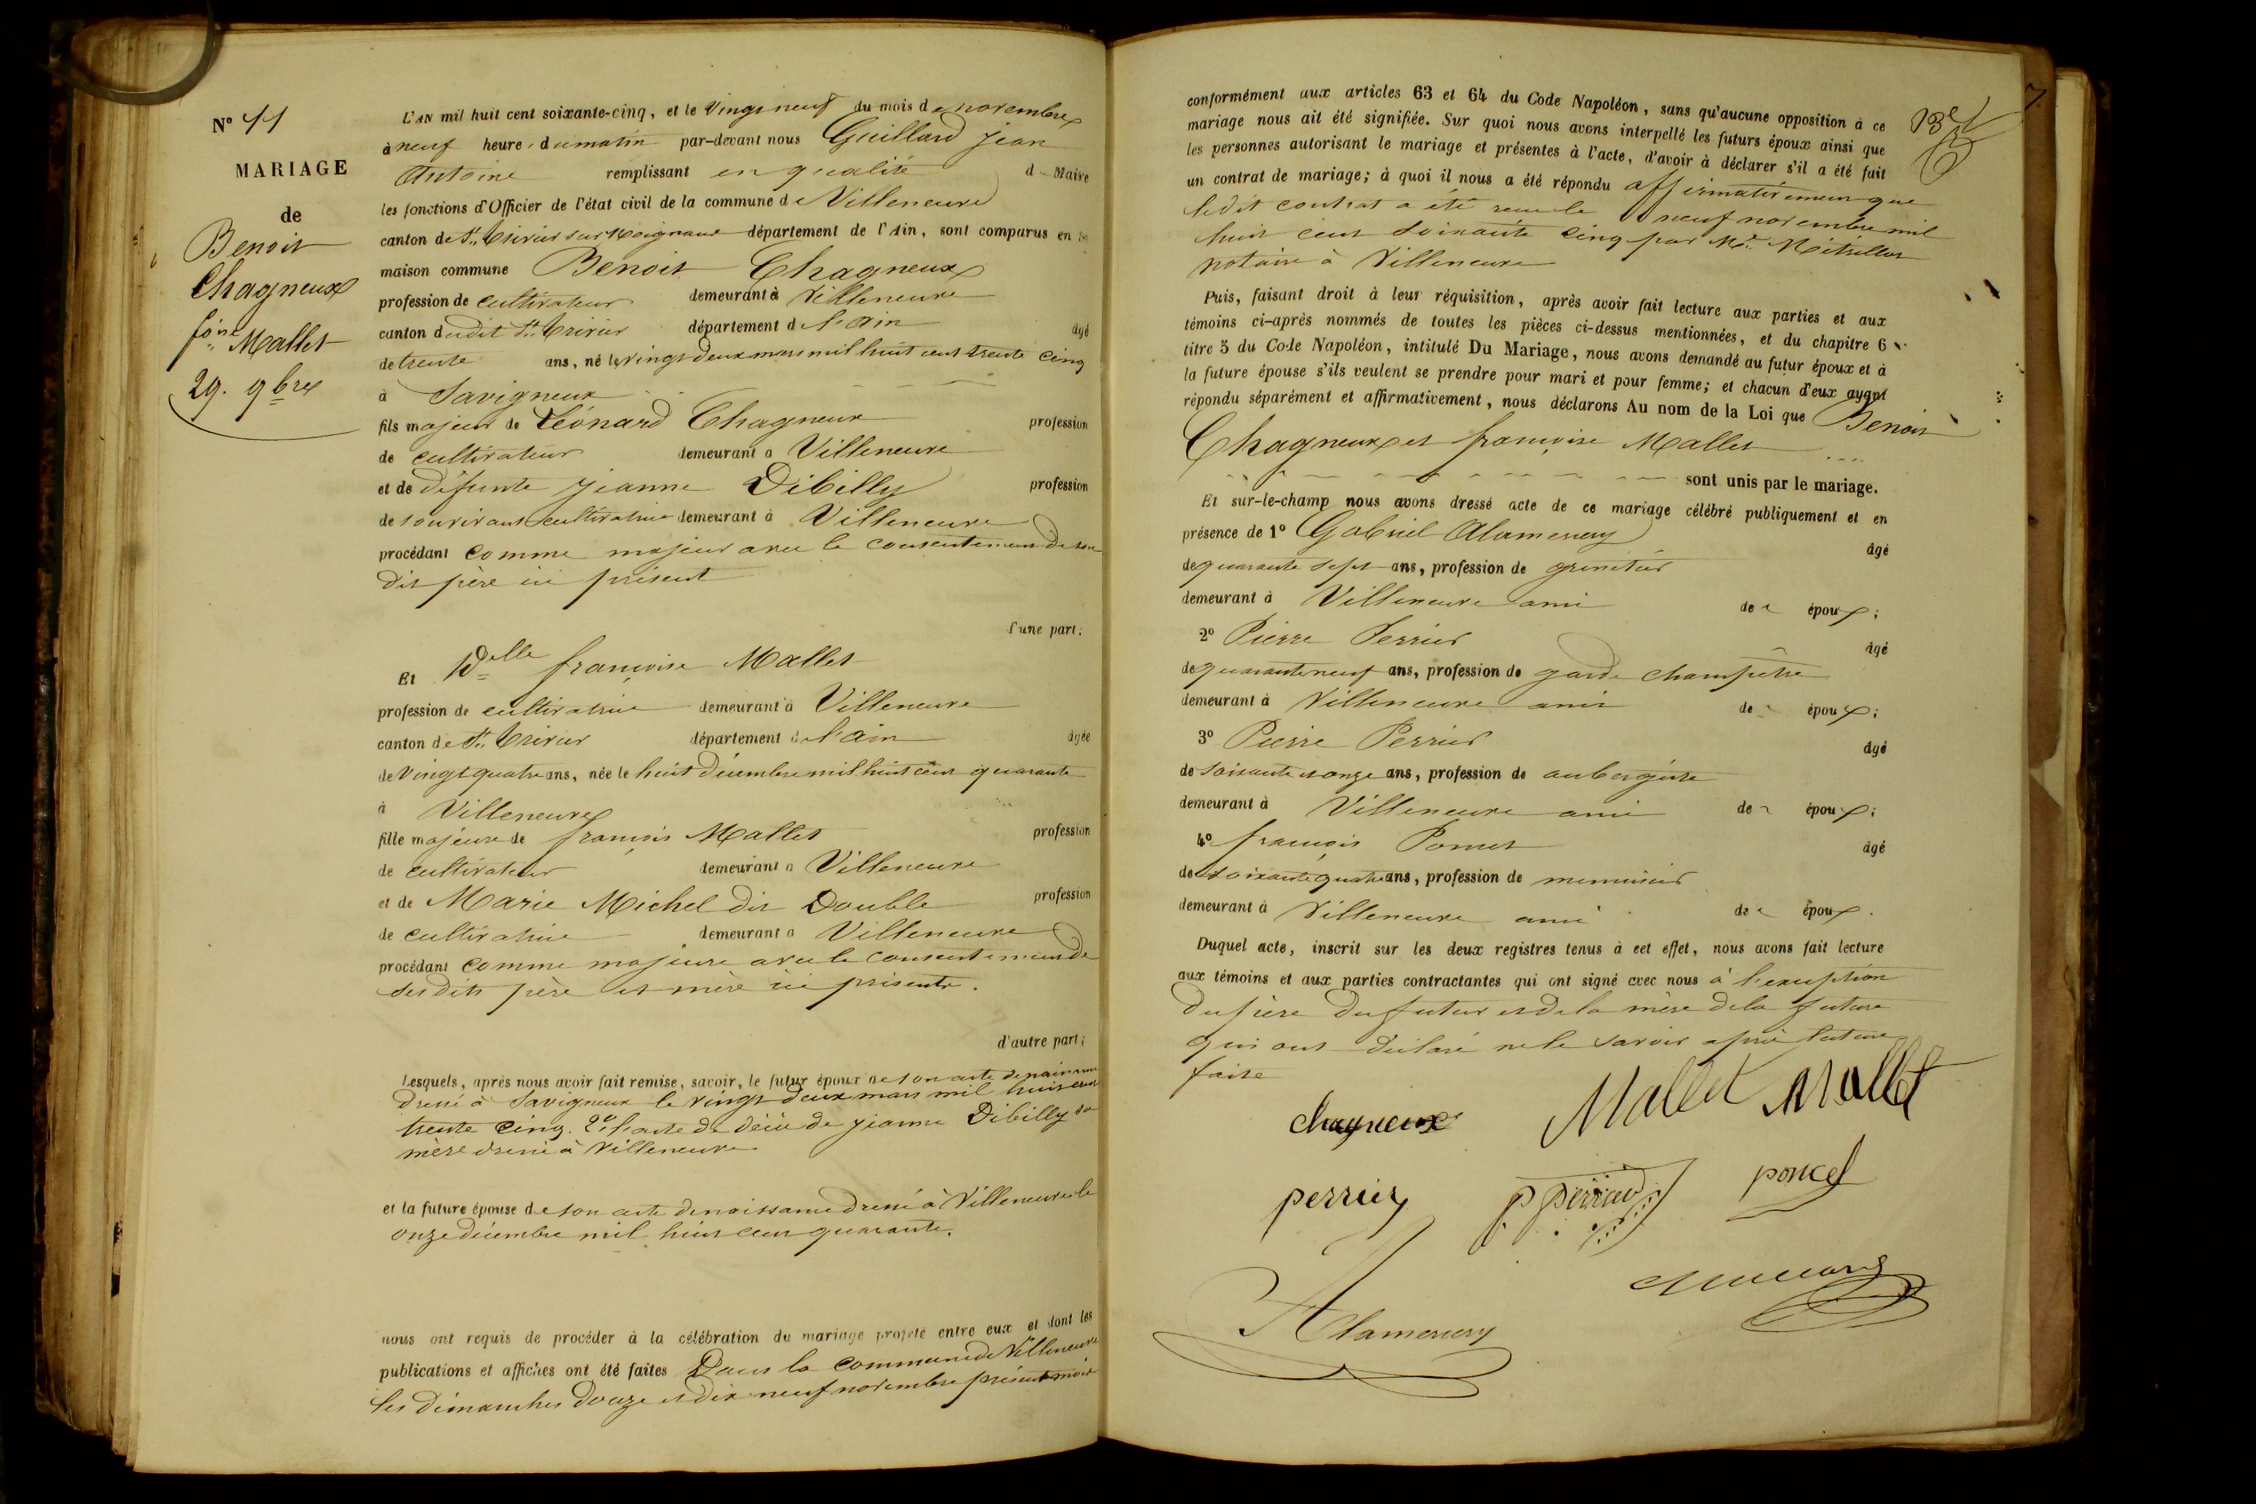 N° 11
MARIAGE
de
Benoit
Chagneux
fçoise Mallet
29. 9bre
L'AN mil huit cent soixante-cinq, et le vingt neuf du mois de novembre
à neuf heures du matin par-devant nous Guillard Jean
Antoine remplissant en qualité de Maire
les fonctions d'Officier de l'état civil de la commune de Villeneuve
canton de St. Trivier sur Moignans département de l'Ain, sont comparus en la
maison commune Benoit Chagneux
profession de cultivateur demeurant à Villeneuve
canton dudit St. Trivier département de l'ain âgé
de trente ans, né le vingt deux mars mil huit cent trente cinq
à Savigneux
fils majeur de Léonard Chagneux profession
de cultivateur demeurant à Villeneuve
et de défunte jeanne Dibilly profession
de son vivant cultivatrice demeurant à Villeneuve
procédant comme majeur avec le consentement de son
dit père ici présent
d'une part;
Et Delle françoise Mallet
profession de cultivatrice demeurant à Villeneuve
canton de St. Trivier département de l'ain âgée
de vingt quatre ans, née le huit décembre mil huit cent quarante
à Villeneuve
fille majeure de françois Mallet profession
de cultivateur demeurant à Villeneuve
et de Marie Michel dit Double profession
de cultivatrice demeurant à Villeneuve
procédant comme majeure avec le consentement de
ses dits père et mère ici présents.
d'autre part;
Lesquels, après nous avoir fait remise, savoir, le futur époux de son acte de naissance
dressé à Savigneux le vingt deux mars mil huit cent
trente cinq. 2° l'acte de décès de jeanne Dibilly sa
mère dressé à Villeneuve
et la future épouse de son acte de naissance dressé à Villeneuve le
onze décembre mil huit cent quarante.
nous ont requis de procéder à la célébration du mariage projeté entre eux et dont les
publications et affiches ont été faites Dans la commune de Villeneuve
les dimanches douze et dix neuf novembre présent mois
7
conformément aux articles 63 et 64 du Code Napoléon, sans qu'aucune opposition à ce
mariage nous ait été signifiée. Sur quoi nous avons interpellé les futurs époux ainsi que
les personnes autorisant le mariage et présentes à l'acte, d'avoir à déclarer s'il a été fait
un contrat de mariage; à quoi il nous a été répondu affirmativement que
ledit contrat a été reçu le neuf novembre mil
huit cent soixante cinq par Me. Métrillot
notaire à Villeneuve
Puis, faisant droit à leur réquisition, après avoir fait lecture aux parties et aux
témoins ci-après nommés de toutes les pièces ci-dessus mentionnées, et du chapitre 6
titre 5 du Code Napoléon, intitulé Du Mariage, nous avons demandé au futur époux et à
la future épouse s'ils veulent se prendre pour mari et pour femme; et chacun d'eux ayant
répondu séparément et affirmativement, nous déclarons Au nom de la Loi que Benoit
Chagneux et françoise Mallet
sont unis par le mariage.
Et sur-le-champ nous avons dressé acte de ce mariage célébré publiquement et en
présence de 1° Gabriel Alamercery âgé
de quarante sept ans, profession de grenetier
demeurant à Villeneuve ami de l' époux;
2° Pierre Perrier âgé
de quarante neuf ans, profession de garde champêtre
demeurant à Villeneuve ami de l' époux;
3° Pierre Perrier âgé
de soixante et onze ans, profession de aubergiste
demeurant à Villeneuve ami de l' époux;
4° françois Poncet âgé
de soixante quatre ans, profession de menuisier
demeurant à Villeneuve ami de l' époux.
Duquel acte, inscrit sur les deux registres tenus à cet effet, nous avons fait lecture
aux témoins et aux parties contractantes qui ont signé avec nous à l'exception
du père du futur et de la mère de la future
qui ont déclaré ne le savoir après lecture
faite
chagneux Mallet Mallet
perrier p perrier poncet
Alamercery